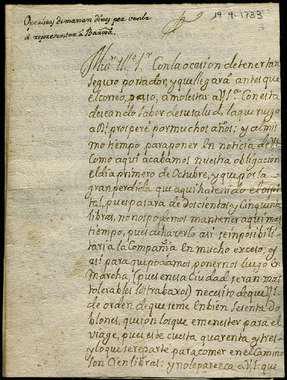 19-9-1733
Operistas demanan diner per venir
á representar a Barna.
Muy Ille. Sr. Con la ocasion de tener tan
seguro portador, y que llegará antes que
el correo, paso, a molestar a V.S. Con esta
deceando saber de su salud, la que ruego
a Dios prospere por muchos años; y al mis
mo tiempo para poner en noticia de V.S.
Como aqui acabamos nuestra obligacion
el dia primero de Octubre, y que por la
gran perdida que aqui ha tenido el ospi
tal, pues pasara de doscientas y Cinquenta
libras, no nos podemos mantener aqui mas
tiempo, pues de hacerlo asi se imposibili
taria la Compañia En mucho exceso, y asi
para que podamos ponernos luego En
marcha, (pues en esa Ciudad seran mas
tolerables los trabaxos) necesito de que V.S.
de orden de que se me Embien sesenta Do
blones, que son los que e menester para el
viage, pues se cuesta quarenta, y tres
y lo que se reparte para comer en el camino
son Cien libras; y no le paresca a V.S. que